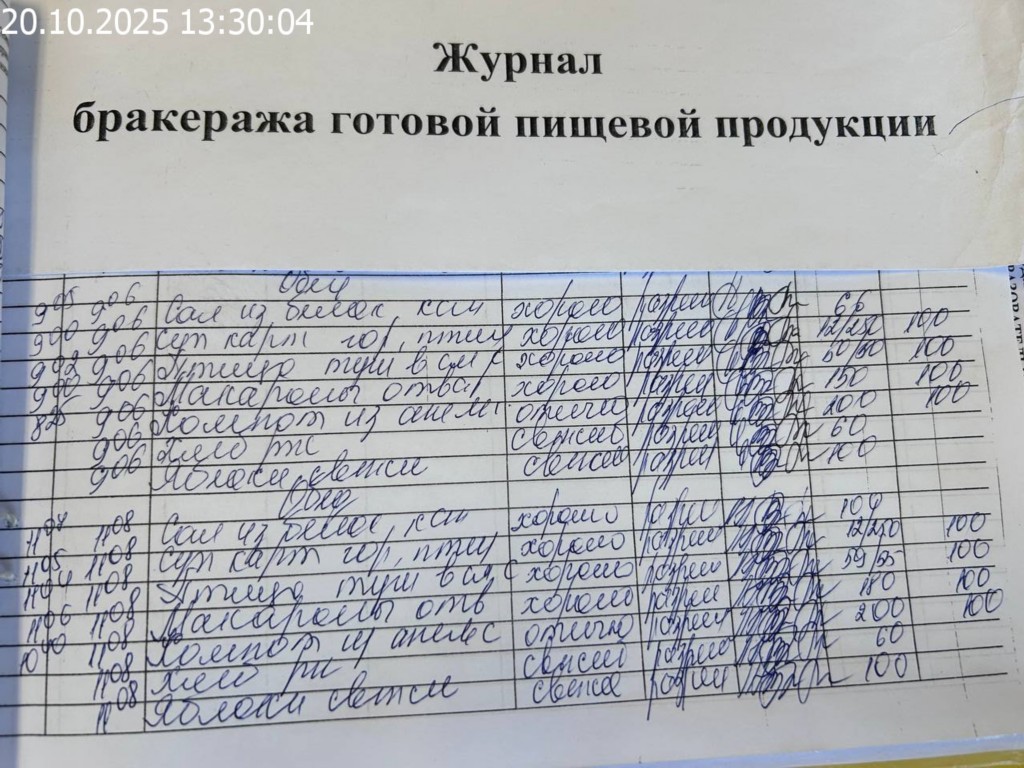 20.10.2025 13:30:04
Журнал
бракеража готовой пищевой продукции
Обед
9 05 9 06 Сал из белок, кап хорошо разреш 65
9 00 9 06 Суп карт гор, птиц хорошо разреш 12/250 100
9 02 9 06 Птица туш в см с хорошо разреш 50/50 100
9 00 9 06 Макароны отвар хорошо разреш 150 100
8 25 9 06 Компот из апельс отлично разреш 200 100
9 06 Хлеб рж свежий разреш 60
9 06 Яблоки свежие свежие разреш 100
Обед
11 07 11 08 Сал из белок, кап хорошо разреш 104
11 05 11 08 Суп карт гор, птиц хорошо разреш 12/250 100
11 04 11 08 Птица туш в см с хорошо разреш 59/55 100
11 06 11 08 Макароны отв хорошо разреш 180 100
10 40 11 08 Компот из апельс отлично разреш 200 100
11 08 Хлеб рж свежий разреш 60
11 08 Яблоки свежие свежие разреш 100